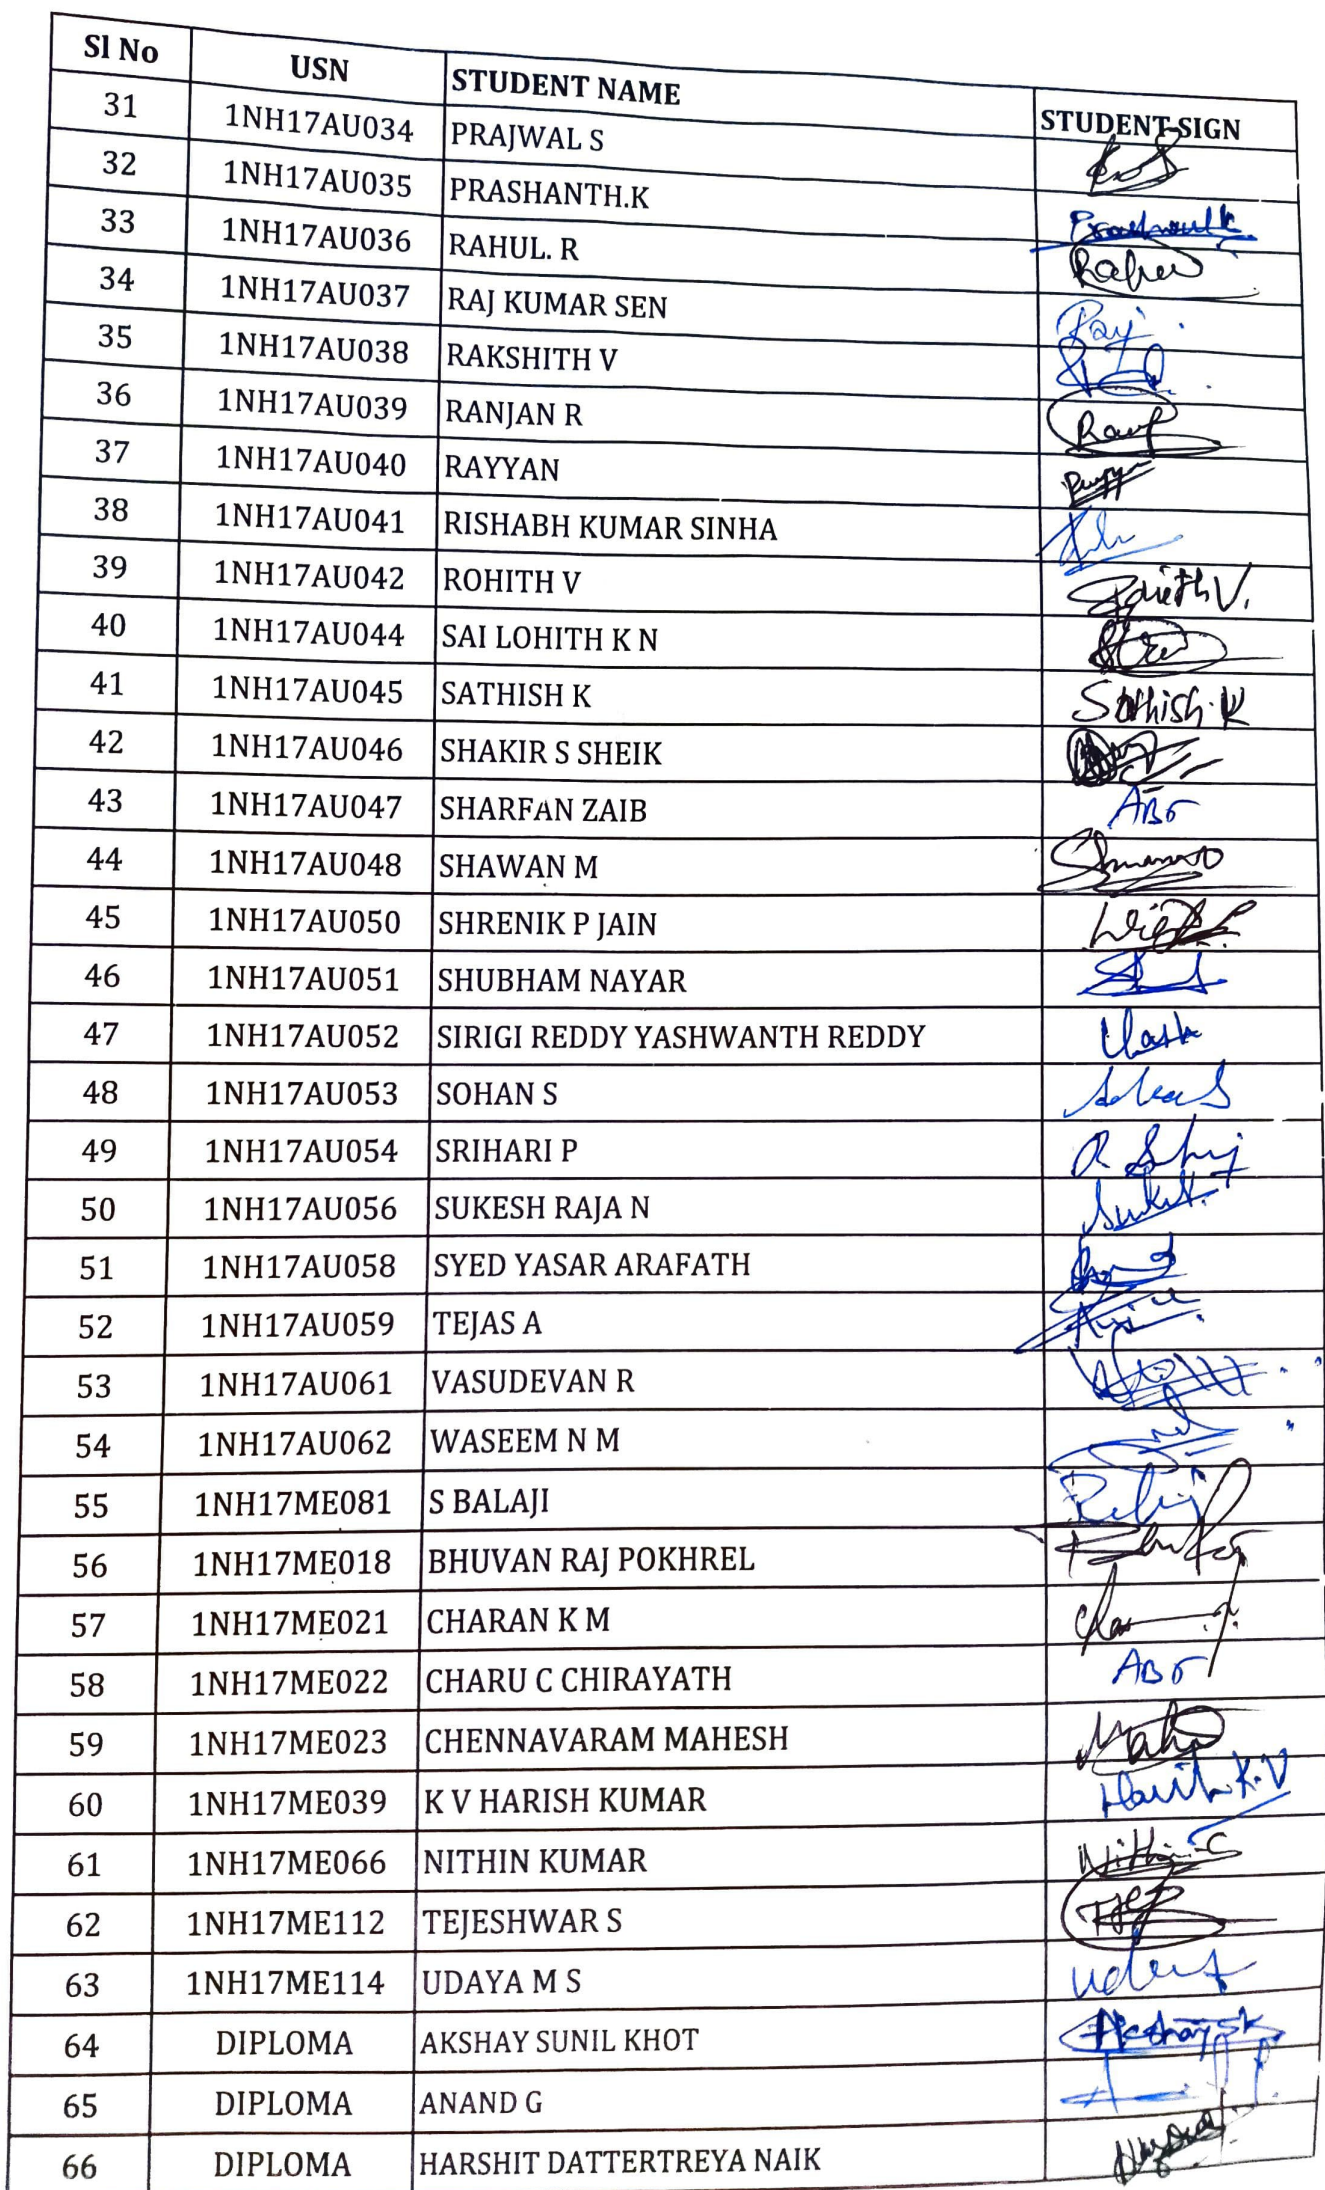 Sl No USN STUDENT NAME STUDENT SIGN
31 1NH17AU034 PRAJWAL S
32 1NH17AU035 PRASHANTH.K
33 1NH17AU036 RAHUL. R Rahul
34 1NH17AU037 RAJ KUMAR SEN Raj
35 1NH17AU038 RAKSHITH V
36 1NH17AU039 RANJAN R
37 1NH17AU040 RAYYAN
38 1NH17AU041 RISHABH KUMAR SINHA
39 1NH17AU042 ROHITH V Rohith V.
40 1NH17AU044 SAI LOHITH K N
41 1NH17AU045 SATHISH K Sathish.K
42 1NH17AU046 SHAKIR S SHEIK
43 1NH17AU047 SHARFAN ZAIB
44 1NH17AU048 SHAWAN M
45 1NH17AU050 SHRENIK P JAIN
46 1NH17AU051 SHUBHAM NAYAR
47 1NH17AU052 SIRIGI REDDY YASHWANTH REDDY Yash
48 1NH17AU053 SOHAN S Sohan S
49 1NH17AU054 SRIHARI P
50 1NH17AU056 SUKESH RAJA N
51 1NH17AU058 SYED YASAR ARAFATH
52 1NH17AU059 TEJAS A
53 1NH17AU061 VASUDEVAN R
54 1NH17AU062 WASEEM N M
55 1NH17ME081 S BALAJI
56 1NH17ME018 BHUVAN RAJ POKHREL
57 1NH17ME021 CHARAN K M
58 1NH17ME022 CHARU C CHIRAYATH
59 1NH17ME023 CHENNAVARAM MAHESH
60 1NH17ME039 K V HARISH KUMAR Harish K.V
61 1NH17ME066 NITHIN KUMAR Nithin C
62 1NH17ME112 TEJESHWAR S
63 1NH17ME114 UDAYA M S
64 DIPLOMA AKSHAY SUNIL KHOT Akshay SK
65 DIPLOMA ANAND G
66 DIPLOMA HARSHIT DATTERTREYA NAIK